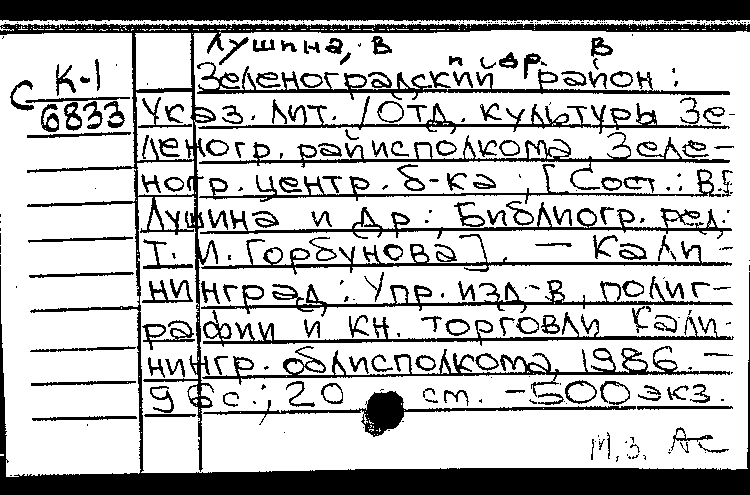 Лушина, В
и др. В
С К-1 Зеленоградский район :
6833 Указ. лит. / Отд. культуры Зе-
леногр. райисполкома, Зеле-
ногр. центр. б-ка ; [Сост.: В.
Лушина и др.; Библиогр. ред.
Т. И. Горбунова]. — Кали-
нинград : Упр. изд-в, полиг-
рафии и кн. торговли Кали-
нингр. облисполкома, 1986. —
96 с. ; 20 см. - 500 экз.
М. З. АС